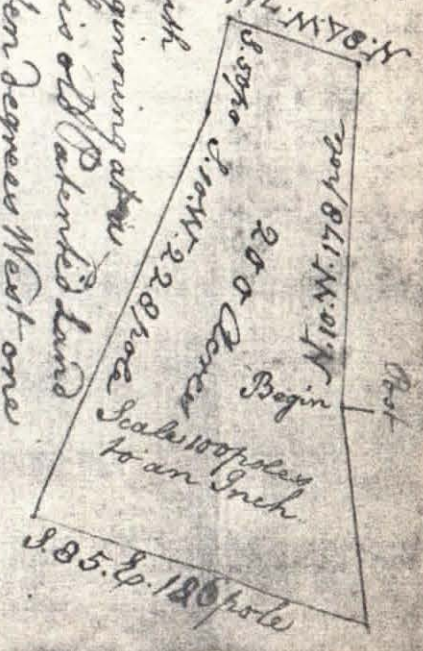 N. 84 W.
S. 50 po
S. 10. W. 228 pole
200 Acres
N. 10. W. 178 pole
Begin
Post
Scale 100 poles
to an Inch
S. 85. E. 126 pole
ginning at a
is old Patented Land
ten degrees West one